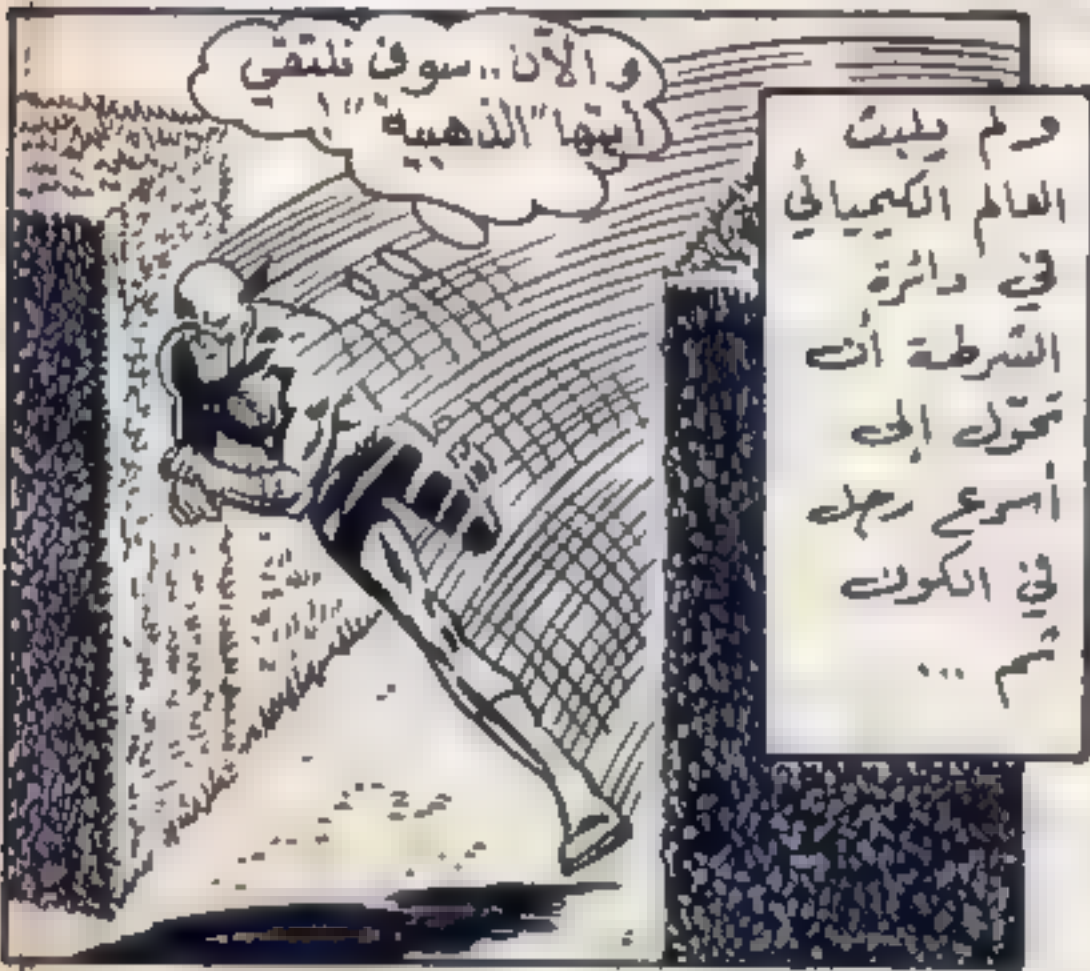 ولم يلبث
العالم الكيميائي
في دائرة
الشرطة أن
تحوّل إلى
أسرع رجل
في الكون
ثم ...
و الآن.. سوف نلتقي
أيتها "الذهبية" !